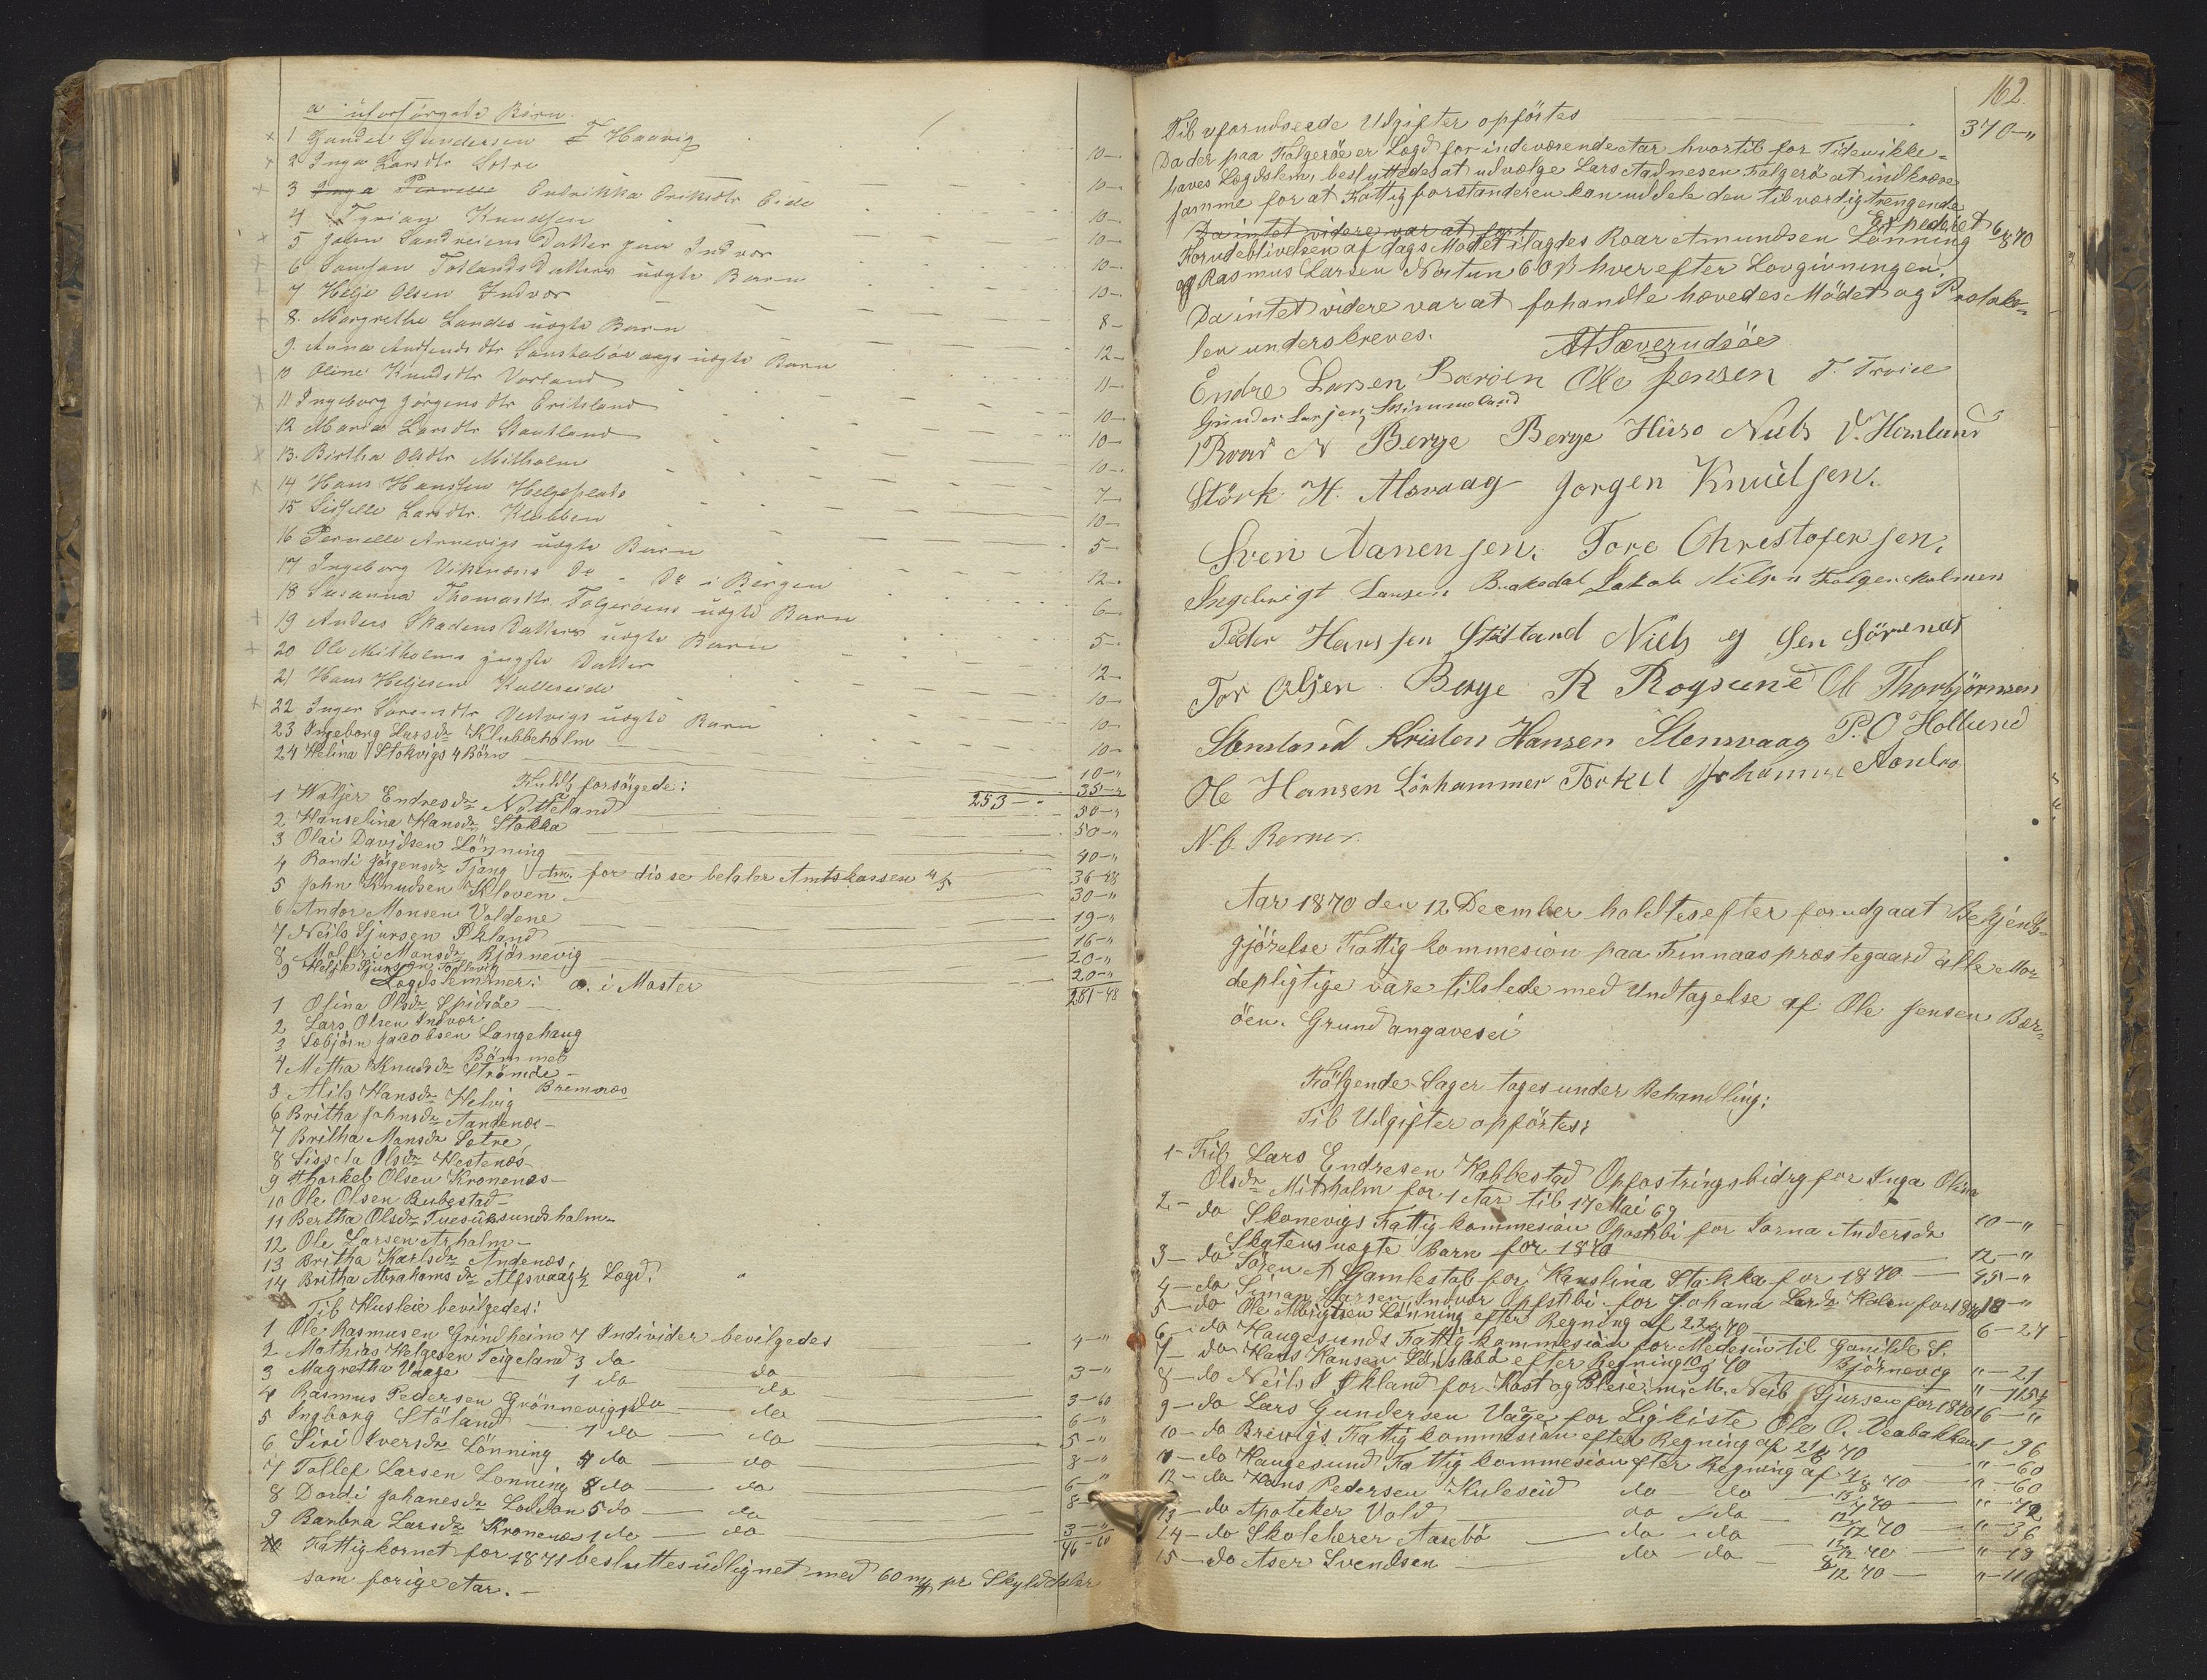 a uforsörgede Börn
1 Gundei Gundersen Haavig 10-
2 Inga Larsdtr Sotre 10-
3 Inga Pernelle Endrikka Eriksdtr Eide 10-
4 Tyrian Knudsen 10-
5 John Sandveiens Datter paa Indvær 10-
6 Samson Totlands Datters uægte Barn 10-
7 Helje Olsen Indvær 8-
8. Margrethe Landes uægte Barn 12-
9. Anna Audsends dtr uægte Barn 11-
10 Oline Knudsdtr Vorland 10-
11 Ingeborg Jörgensdtr Eriksland 10-
12 Maria Larsdtr Stautland 10-
13. Birtha Olsdtr Mitholm 7-
14 Hans Hansen Helgeplads 10-
15 Sisselle Larsdtr. Klubben 5-
16 Pernelle Arnevigs uægte Barn 12-
17 Ingeborg Vikenæs Do - Do i Bergen 6-
18 Susanna Thomasdtr. Folgeröens uægte Barn 5-
19 Anders Skadens Datters uægte Barn 12-
20 Ole Mitholms yngste Datter 10-
21 Hans Heljesen Kulleseide 10-
22 Inger Larsensdtr Vestvigs uægte Barn 10-
23 Ingeborg Larsdr Klubbeholm 10-"
24 Helina Stokvigs 4 Börn 35-"
Fuldt forsörgede: 253-"
1 Woljer Endresdr Nötteland 50-"
2 Hanselina Hansdr Stakka 50-"
3 Olai Davidsen Lönning 40-"
4 Randi Jörgensdr Tjang Am. for disse betaler Amtskassen 4/5 36-48
5 John Knudsen Kloven 30-"
6 Andor Monsen Valdene 19-"
7 Neils Sjursen Økland 16-"
8 Molfri Monsdr Björnevig 20-"
9 Helje Sjursen 20-"
Lægdslemmer: a. i Moster 281-48
1 Olina Olsdr Spidsöe
2 Lars Olsen Indvær
3 Sæbjörn Jacobsen Langehaug
Bömmel
4 Metha Knudsdr Strömöe -
Bremnæs
5 Alis Hansdr Helvig
6 Britha Johnsdr Aandenæs -
7 Britha Monsdr Sætre,
8 Sissela Olsdr Hestenæs -
9 Thorkel Olsen Kronenæs -
10 Ole Olsen Rubestad -
11 Bertha Olsdr sundsholm -
12 Ole Larsen Arholm -
13 Britha Karlsdr Andenæs,
14 Britha Abrahamsdr Alfsvaag 1/2 Lægd.
Til Husleie bevilgedes:
1 Ole Rasmusen Grindheim 7 Individer bevilgedes 4-"
2 Mathias Helgesen Teigeland 3 do do 3-"
3 Magretha Vaage 1 do do 3-60
4 Rasmus Pedersen Grönnevig do do 6-"
5 Ingborg Stöland 1 do do 5-"
6 Siri Iversdr Lönning 4 do do 8-"
7 Tollef Larsen Lönning 8 do do 6-"
8 Dordi Johanesdr Laddan 5 do do 8-
9 Barbra Larsdr Kronenæs 1 do do 3-"
46-60
10 Fattigkornet for 1871 besluttes udlignet med 60 pr Skylddaler
som forige Aar. -
162.
Til uforudseede Udgifter opförtes 370-"
Da der paa Folgeröe er Lægd for indeværende Aar hvortil for Tiden ikke
haves Lægdslem, beslyttedes at udvælge Lars Aadnesen Folgerö at indkræve
samme for at Fattigforstanderen kan uddele den til værdig trengende
Expederet 6/8 70
Da intet videre var at
Forudeblivelsen af dags Mödet ilagdes Roar Amundsen Lönning
og Rasmus Larsen Nortun 60 ß hver efter Lovgivningen.
Da intet videre var at fohandle hævedes Mödet og Protoko-
len underskreves.
Endre Larsen Bæröen Ole Jensen
Gunder Larsen Skimmeland
Roar N Berge Berge Niels V. Hemland
Störk H. Alsvaag Jörgen Knudsen.
Sven Aanensen. Tore Christofersen.
Ingebrigt Larsen Bakedal Jakob Nilsen
Peder Hanssen Stötland Niels
Tor Olsen Berge R Rogsund Ol Thorbjörnsen
Stensland Kristen Hansen Stensvaag P. O Hollund
Ole Hansen Lönhammer Torkel
Aar 1870 den 12 Decmber holdtes efter forudgaat Bekjendt-
gjörelse Fattigkommesion paa Finnaas præstegaard alle Mö-
depligtige vare tilstede med Undtagelse af Ole Jensen Bær-
öen. Grund angaves ei
Fölgende Sager toges under Behandling:
Til Udgifter opförtes:
1 - Til Lars Endresen Habbestad Opfostringsbidrg for Inga Olina
Olsdr Mitholm for 1 Aar til 17 Mai 69 10-"
2 - do Skonevigs Fattigkommesion Opfostbi for Jorna Andersdr
uægte Barn for 1870 12-"
3 - do Sören A Gamlestab for Hanslina Stakka for 1870 45-"
4 - do Siman Larsen Indvær Opfstbi for Johana Larsdr for 1870 18-"
5 - do Ole Lönning efter Regning af 70 6-24
6 - do Haugesunds Fattigkommesion for Medesin til Gunilde S. Björnevig "-21
7 - do Hans Hansen efter Regning 10/9 70 "-
8 - do Neils I Økland for Kost og Pleie m. M. Neils Sjursen for 1870 16-"
9 - do Lars Gundersen Vaage for Ligkiste Ole O. Veabakken 1-96
10 - do Brevigs Fattigkommesion efter Regning af 70 "-60
11 - do Haugesund Fattigkommesion efter Regning af 4/8 70 "-60
12 - do Hans Pedersen Kuleseid do do 70 "-72
13 - do Apoteker Vold do do 70 "-56
14 - do Skolelærer Aasebö do do 12/12 70 "-19
15 - do Aser Svendsen do do 8/12 70 "-110